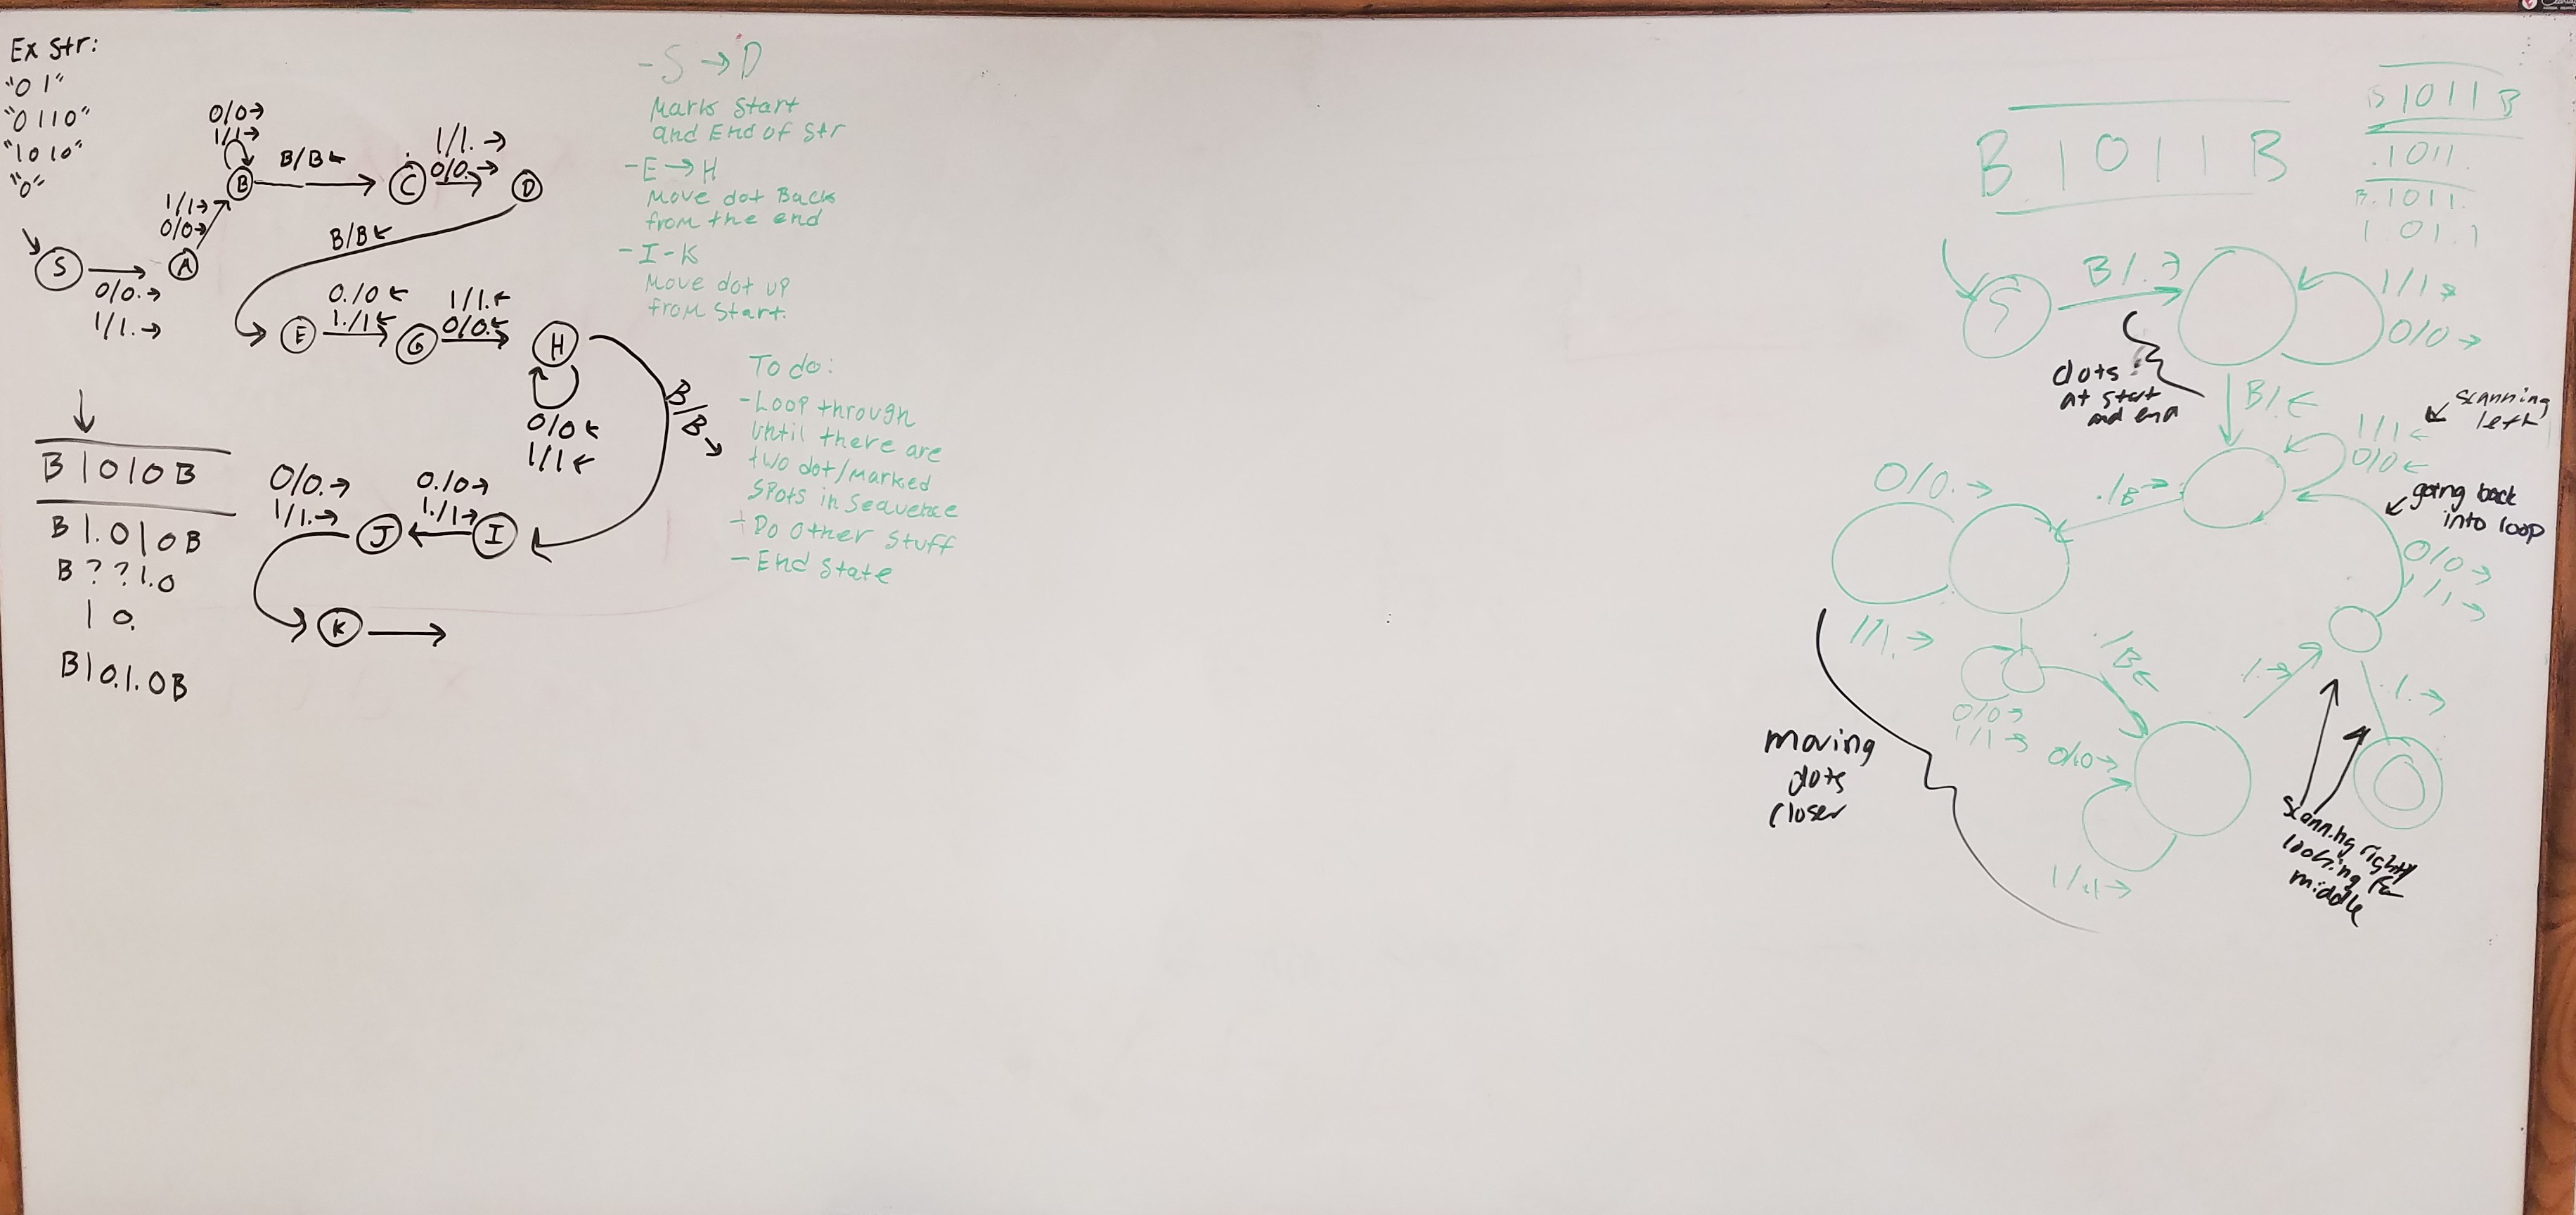 Ex Str:
"0 1"
"0110"
"1010"
"0"
0/0→
1/1→
B/B←
1/1.→
0/0.→
B
C
D
1/1→
0/0→
B/B←
S
A
0/0.→
1/1.→
0./0←
1./1←
1/1.←
0/0.←
E
G
H
0/0←
1/1←
B/B→
B1010B
0/0.→
1/1.→
0./0→
1./1→
J
I
B1.010B
B??1.0
1 0.
K
B10.1.0B
- S → D
Marks Start
and End of Str
- E → H
Move dot Back
from the end
- I - K
Move dot up
from Start.
To do:
- Loop through
until there are
two dot/marked
spots in sequence
+ Do other stuff
- End state
B 1011 B
B 1011 B
.1011.
B.1011.
1.01.1
S
B/.→
1/1→
0/0→
dots
at start
and end
B/.←
scanning
left
1/1←
0/0←
going back
into loop
0/0.→
./B→
0/0→
1/1→
1/1.→
./B←
0/0→
1/1→
moving
dots
closer
scanning right
looking for
middle